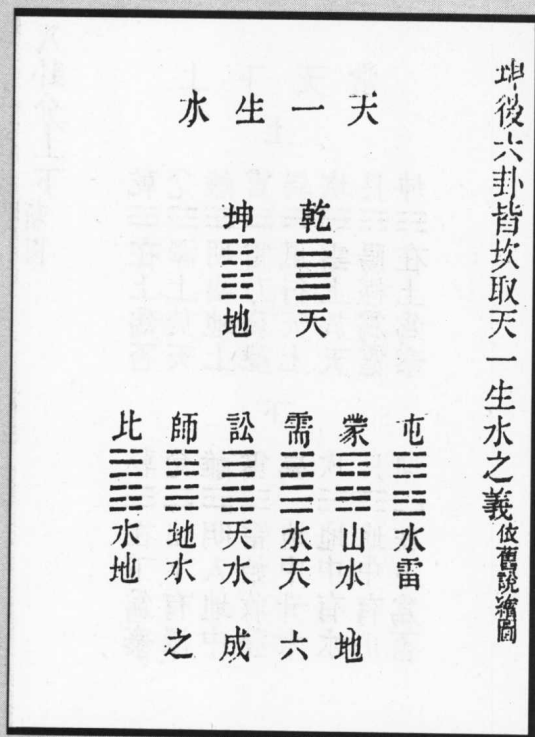 坤後六卦皆坎取天一生水之義 依舊說繪圖
天一生水
乾 天
坤 地
屯 水雷
蒙 山水
需 水天
訟 天水
師 地水
比 水地
地六成之